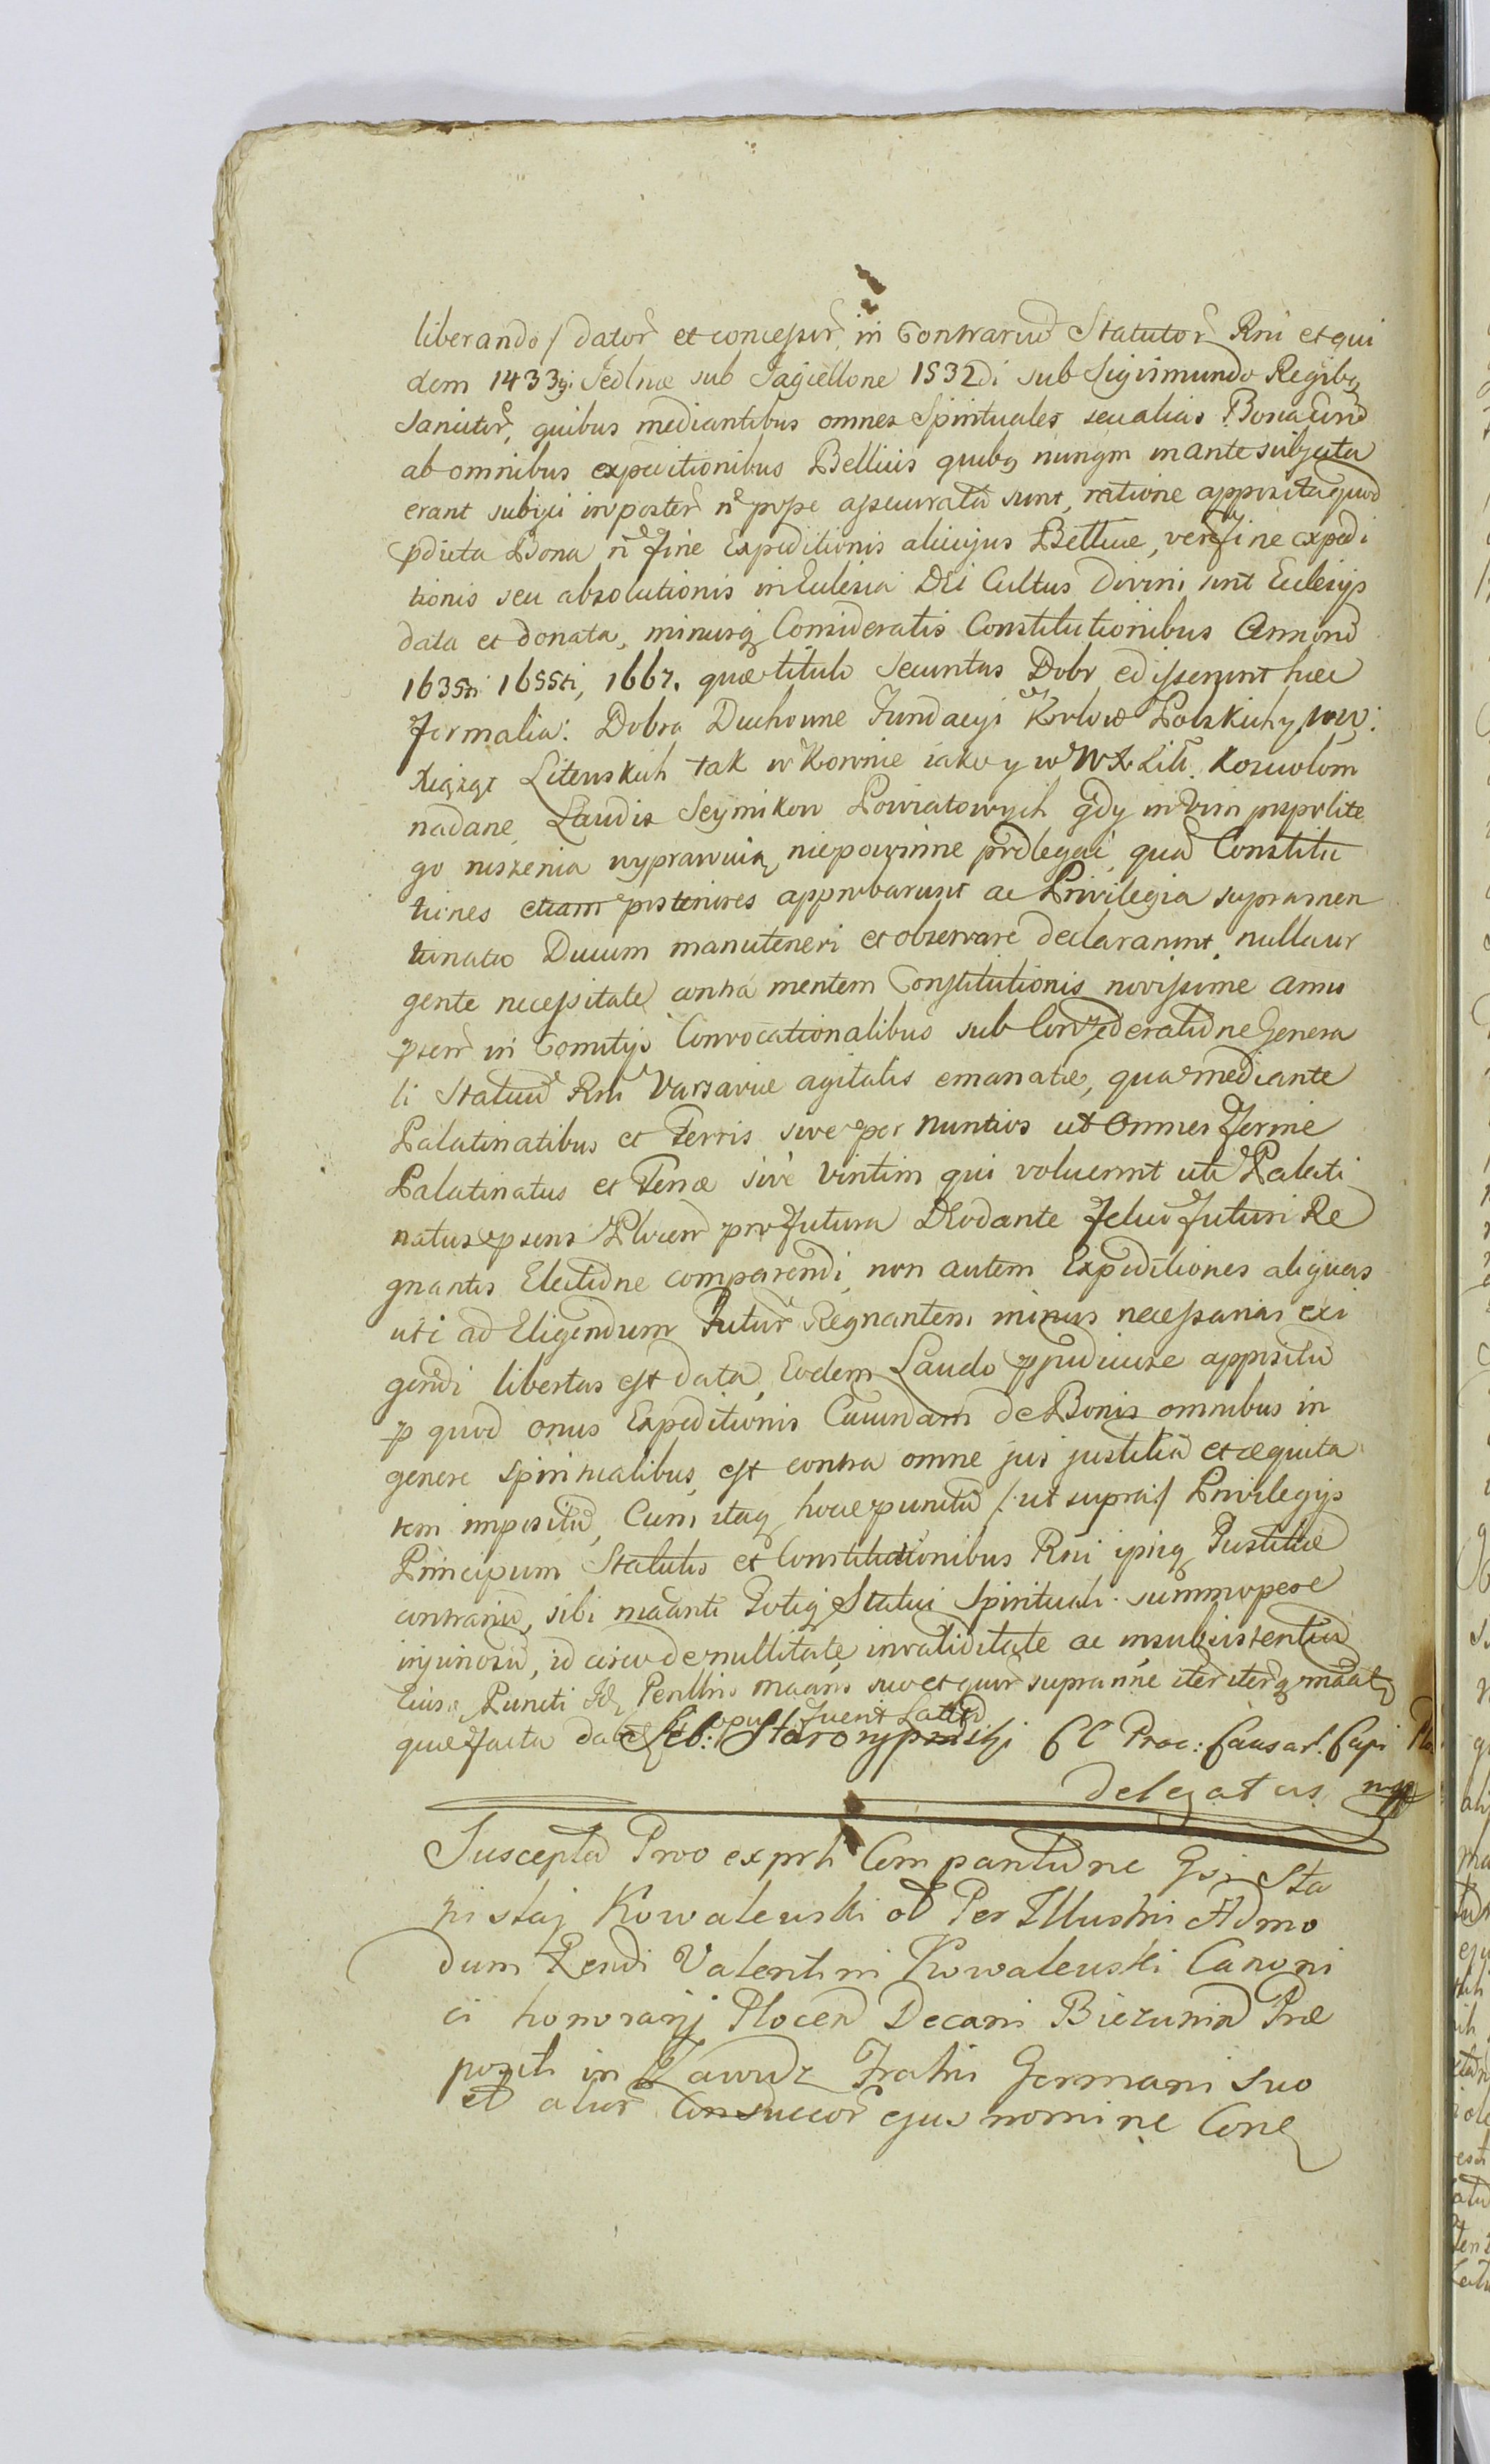 liberando/ dator et concessor in Contrariũ Statutor Rni et qui
dem 1433ij Jedlnæ sub Jagiellone 1532di sub Sigismundo Regibq
Sancitor, quibus mediantibus omnes Spirituales seu alias Bona
ab omnibus expeditionibus Bellicis quibq nunqm in ante subjecta
erant subijci in poster n posse assecurata sunt, ratione apposita quod
pdicta Bona n fine Expeditionis alicujus Bellicæ, verũ fine expedi
tionis seu absolutionis in Ecclesia DEi Cultus Divini sint Ecclesijs
data et donata, minusq Consideratis Constitutionibus Annorũ
1635ti 1655ti, 1667. quæ titulo Securitas Dobr edisserunt hæc
formalia: Dobra Duchowne Fundacyi Krolow Polskich y
Xiążąt Litewskich tak w Koronie iako y w W X Litt. Kosciołom
nadane Laudis Seymikow Powiatowych gdy in vim pospolite
go ruszenia wyprawuią niepowinne podlegać quod Constitu
tiones etiam posteriores approbarunt ac Privilegia supramen
tionato Ducum manuteneri et observare declararunt, nulla ur
gente necessitate contra mentem Constitutionis novissime anno
psen in Comitijs Convocationalibus sub Confæderatione Genera
li Statuũ Rni Varsaviæ agitatis emanatæ, qua mediante
Palatinatibus et Terris sive per Nuntios ut Omnes ferme
Palatinatus et Terræ sive viritim qui voluerint uti Palati
natus psens Plocen pro futura DEo dante felici futuri Re
gnantis Electione comparendi, non autem Expeditiones aliquas
uti ad Eligendum Futur Regnantem minus necessarias exi
gendi libertas est data, Eodem Laudo pjudiciose appositũ
p quod onus Expeditionis Cujusdam de Bonis omnibus in
genere spiritualibus est contra omne jus justitiã et æquita
tem impositũ, Cum itaq hocce punctũ /: ut supra :/ Privilegijs
Principum Statutis et Constitutionibus Rni ipsiq Justitiæ
contrariũ, sibi mãnti Totiq Statui Spirituali summopere
injuriosũ, id circo de nullitate invaliditate ac insubsistentia
Ejusd Puncti Idq Perillris mãans suo et quor supra nne iter iterq mãat
quæ facta
opus fuerit Lattiũ
Seb: Starożypinski CC Proc: Causar. Capi
delegatus mp
Suscepta Prvo exprti Compantione Gsi Sta
nislaj Kowalewski ob Per Illustri Admo
dum Rendi Valentini Kowalewski Canoni
ci honorarij Plocen Decani Biezunin Præ
positi in Zawidz Fratri Germani suo
et alior Consuccor ejus nomine Conq